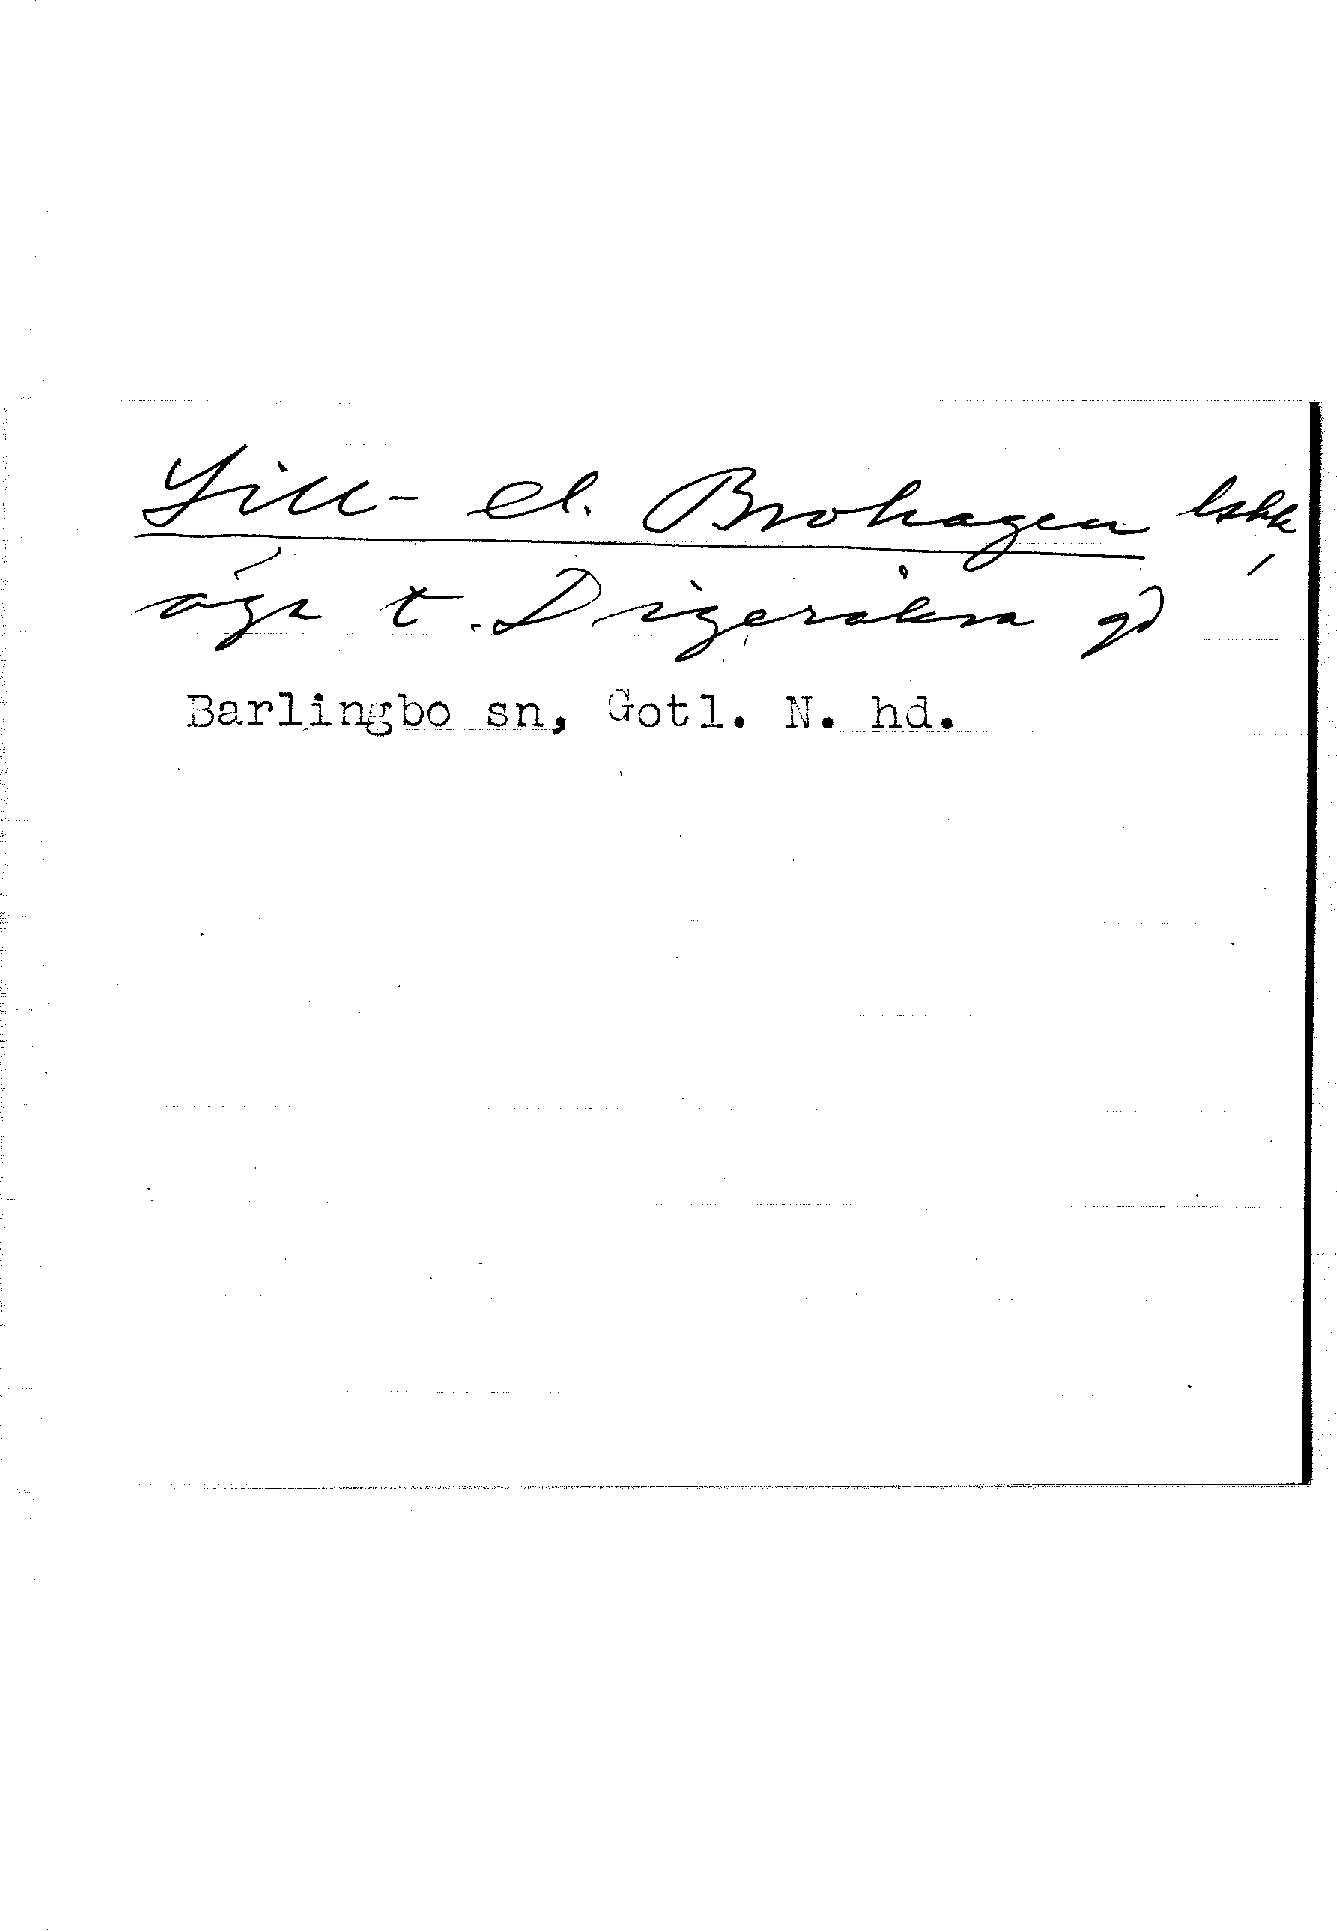 Lill- el. Brohagen lshk,
äga t. Digeråkra gd
Barlingbo sn, Gotl. N. hd.